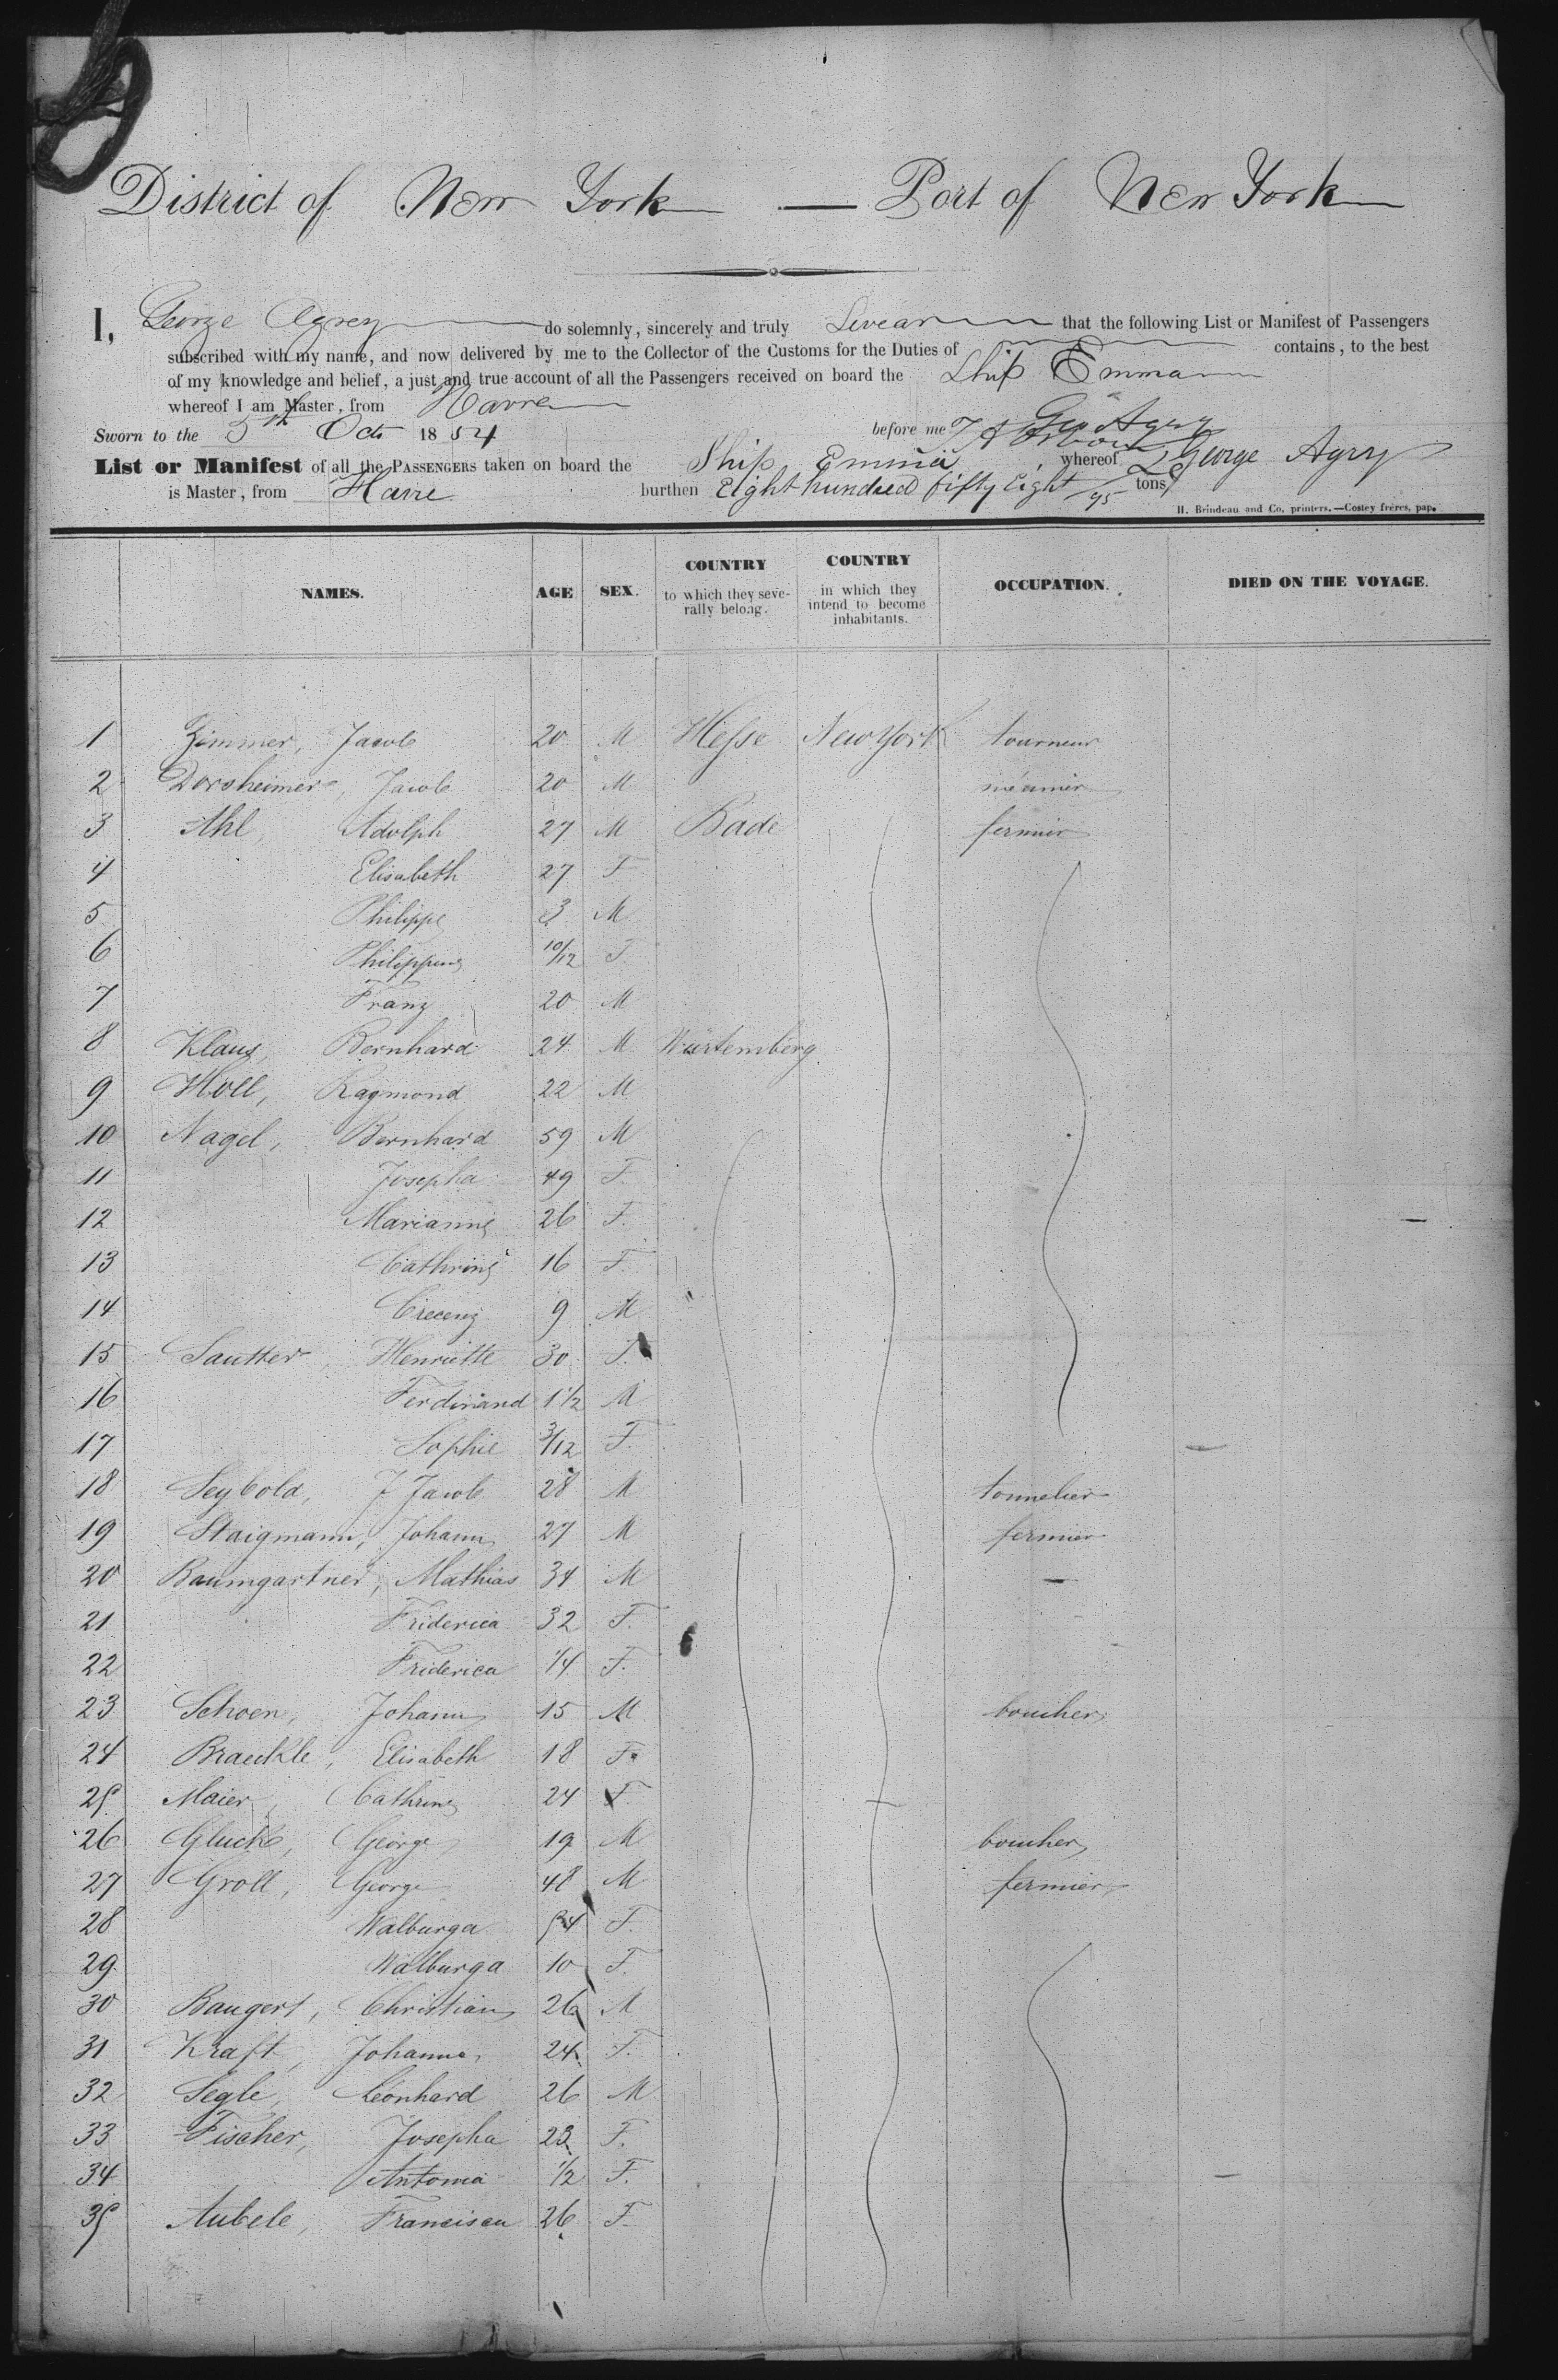 District of New York — Port of New York
I, George Agrey do solemnly, sincerely and truly Swear that the following List or Manifest of Passengers
subscribed with my name, and now delivered by me to the Collector of the Customs for the Duties of contains, to the best
of my knowledge and belief, a just and true account of all the Passengers received on board the Ship Emma
whereof I am Master, from Havre
Geo Agry
Sworn to the 5th Oct 1854 before me
List or Manifest of all the PASSENGERS taken on board the Ship Emma, whereof George Agry
is Master, from Havre burthen Eight hundred fifty eight /95 tons
H. Brindeau and Co, printers.—Costey frères, pap.
NAMES. AGE SEX. COUNTRY to which they severally belong. COUNTRY in which they intend to become inhabitants. OCCUPATION. DIED ON THE VOYAGE.
1 Zimmer, Jacob 20 M Hesse New York tourneur
2 Dorsheimer, Jacob 20 M
3 Ahl, Adolph 27 M Bade fermier
4 Elisabeth 27 F
5 Philippe 3 M
6 Philippine 10/12 F.
7 Franz 20 M
8 Klaus, Bernhard 24 M Würtemberg
9 Holl, Raymond 22 M
10 Nagel, Bernhard 59 M
11 Josepha 49 F.
12 Marianne 26 F.
13 Cathrine 16 F.
14 Crecenz 9 M
15 Sautter, Henriette 30 F.
16 Ferdinand 1 1/2 M
17 Sophie 3/12 F.
18 Seybold, J Jacob 28 M tonnelier
19 Staigmann, Johann 27 M fermier
20 Baumgartner, Mathias 34 M —
21 Friderica 32 F.
22 Friderica 1/4 F.
23 Schoen, Johann 15 M boucher
24 Braeckle, Elisabeth 18 F.
25 Maier, Cathrine 24 F
26 Gluck, George 19 M boucher
27 Groll, George 48 M fermier
28 Walburga 54 F.
29 Walburga 10 F.
30 Baugert, Christian 26 M
31 Kraft, Johanna 24 F.
32 Segle, Leonhard 26 M
33 Fischer, Josepha 23 F.
34 Antonia 1/2 F.
35 Aubele, Francisca 26 F.